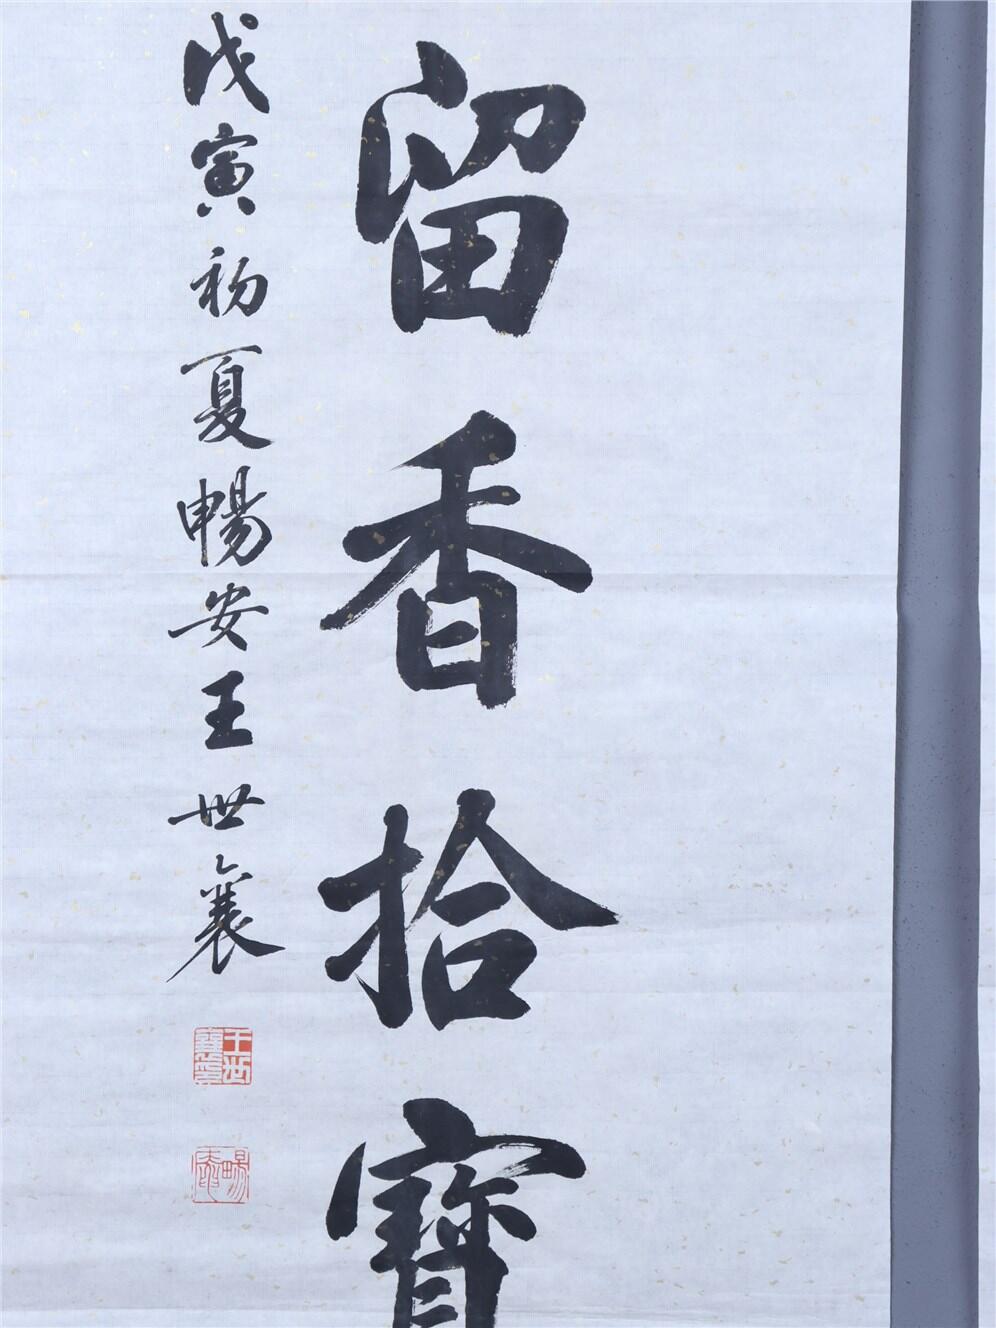 留香拾寶
戊寅初夏暢安王世襄
王世襄
暢安